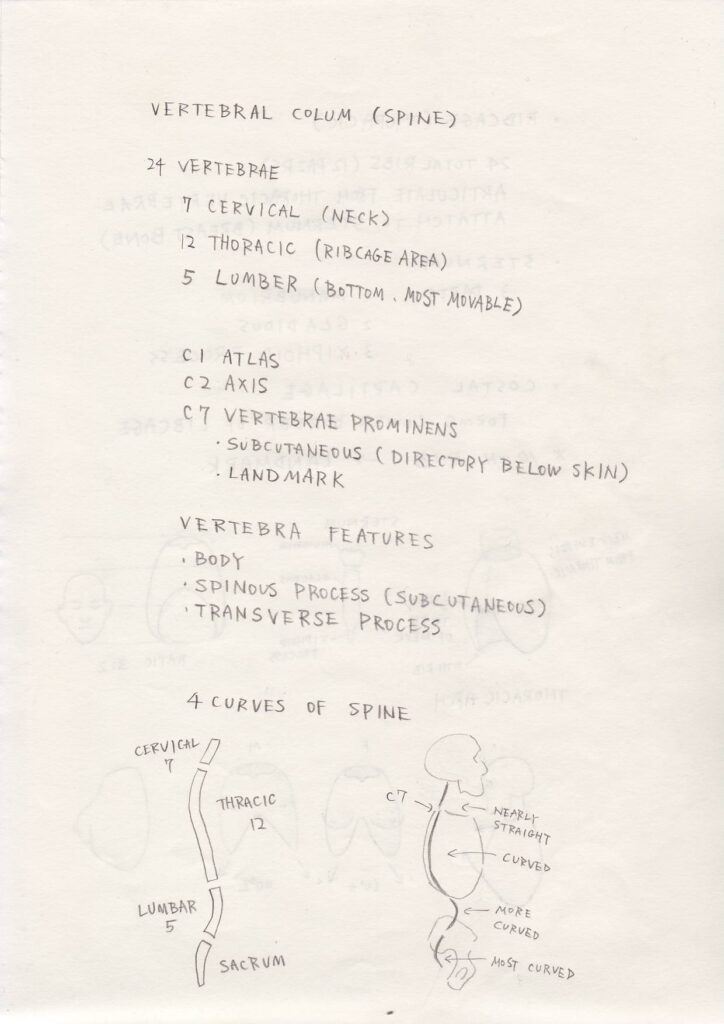 VERTEBRAL COLUM (SPINE)
24 VERTEBRAE
7 CERVICAL (NECK)
12 THORACIC (RIBCAGE AREA)
5 LUMBER (BOTTOM, MOST MOVABLE)
C1 ATLAS
C2 AXIS
C7 VERTEBRAE PROMINENS
• SUBCUTANEOUS (DIRECTORY BELOW SKIN)
• LANDMARK
VERTEBRA FEATURES
• BODY
• SPINOUS PROCESS (SUBCUTANEOUS)
• TRANSVERSE PROCESS
4 CURVES OF SPINE
CERVICAL
7
THRACIC
12
LUMBAR
5
SACRUM
C7
NEARLY
STRAIGHT
CURVED
MORE
CURVED
MOST CURVED